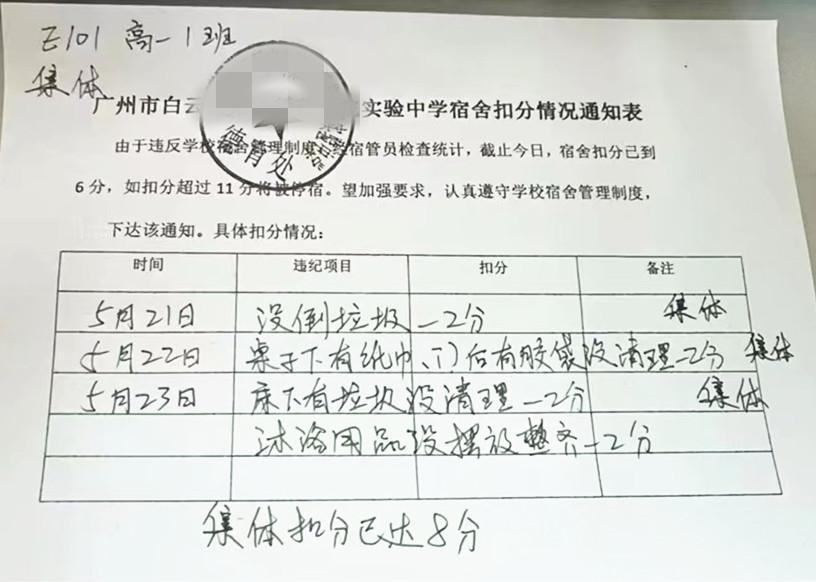 E101 高一1班
集体
广州市白云 实验中学宿舍扣分情况通知表
德育处
由于违反学校宿舍管理制度，经宿管员检查统计，截止今日，宿舍扣分已到
6分，如扣分超过11分将被停宿。望加强要求，认真遵守学校宿舍管理制度，
下达该通知。具体扣分情况：
时间 违纪项目 扣分 备注
5月21日 没倒垃圾 -2分 集体
5月22日 桌子下有纸巾、门后有胶袋没清理-2分 集体
5月23日 床下有垃圾没清理-2分 集体
沐浴用品没摆放整齐-2分
集体扣分已达8分